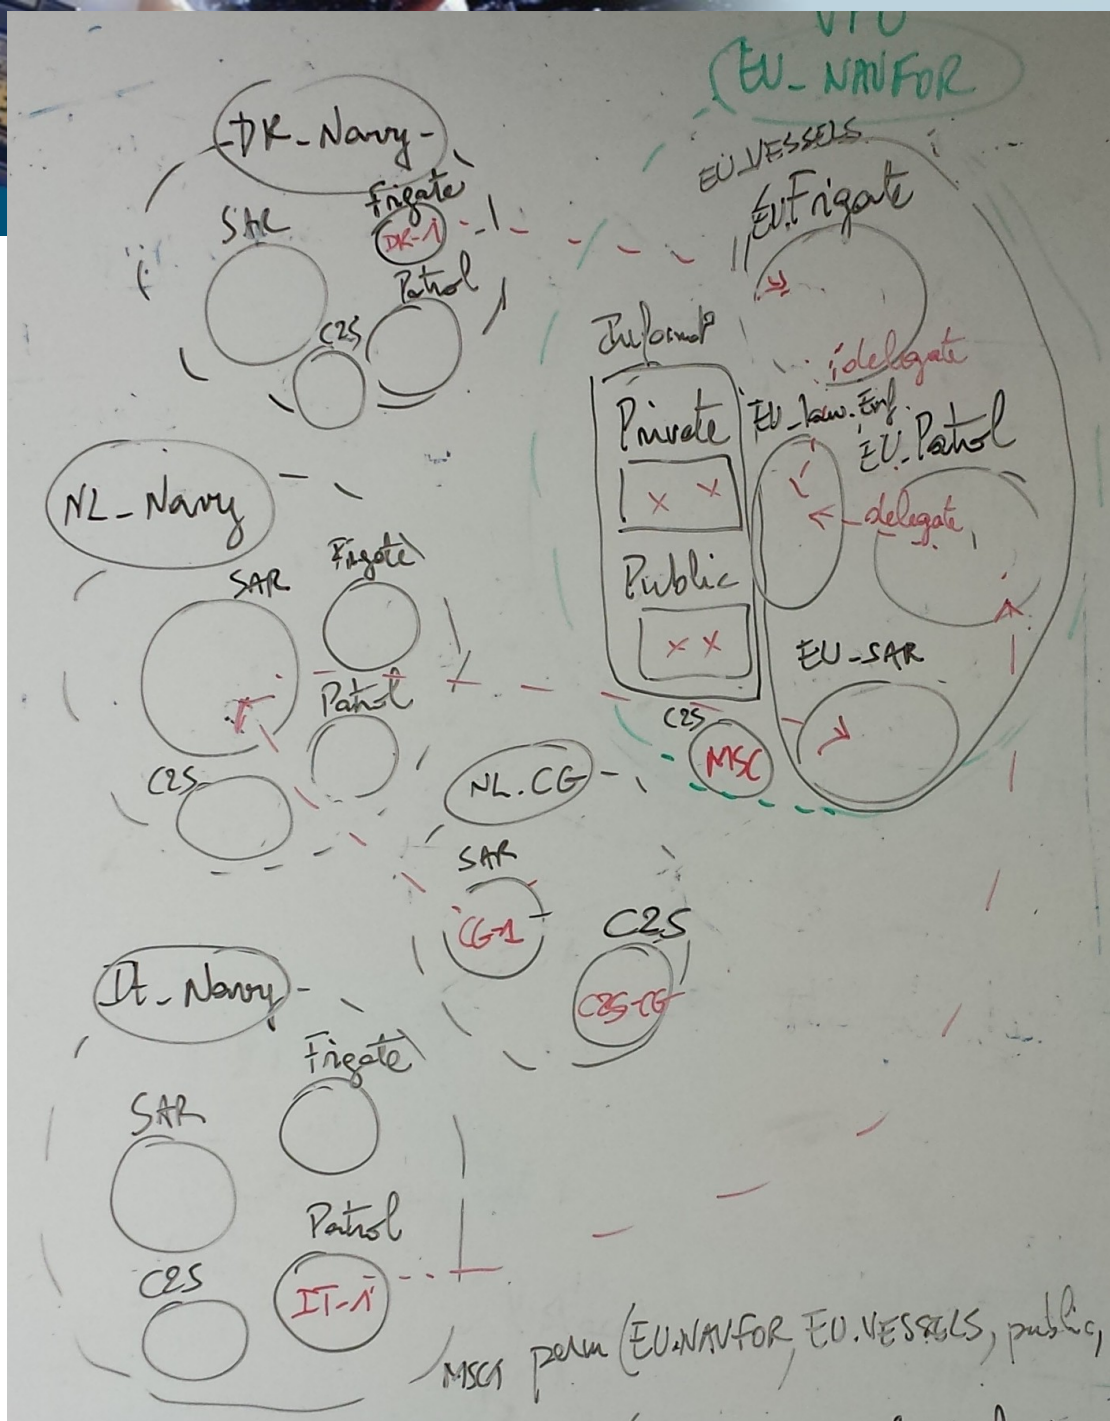 VPO
EU_NAVFOR
DK_Navy
SAR
Frigate
DK-1
Patrol
C2S
EU_VESSELS
EU.Frigate
delegate
Private
x x
Public
x x
EU_Law.Enf.
EU_Patrol
delegate
EU_SAR
C2S
MSC
NL_Navy
SAR
Frigate
Patrol
C2S
NL.CG
SAR
CG-1
C2S
C2S-CG
It_Navy
Frigate
SAR
Patrol
IT-1
C2S
perm (EU.NAVFOR, EU.VESSELS, public,